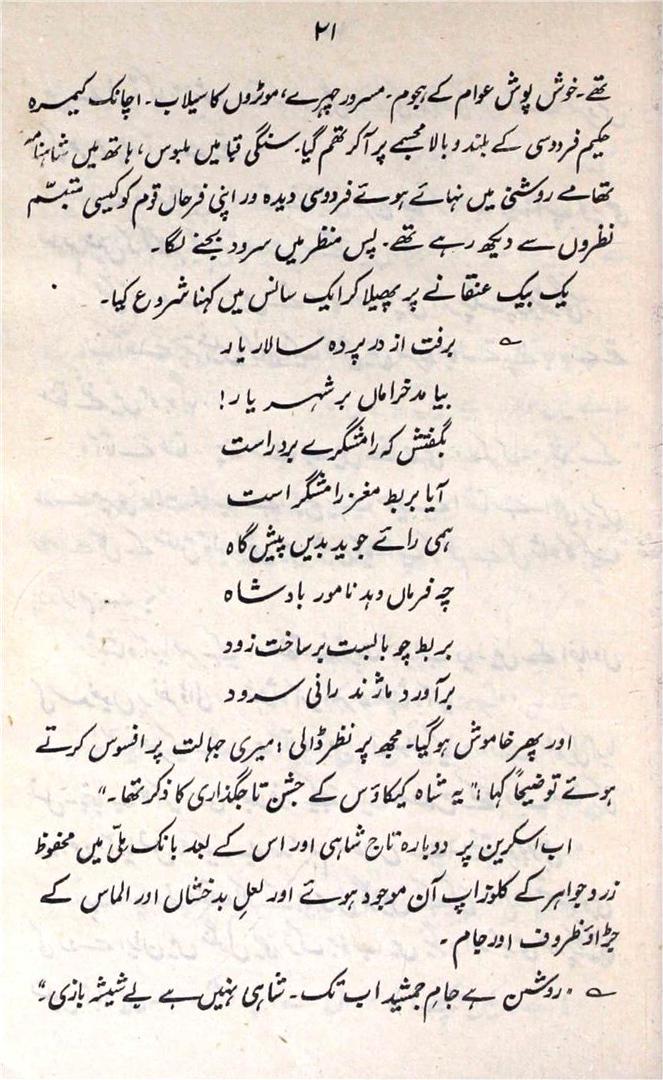 ۲۱
تھے۔ خوش پوش عوام کے ہجوم۔ مسرور چہرے، موٹروں کا سیلاب۔ اچانک کیمرہ
حکیم فردوسی کے بلند و بالا مجسمے پر آکر تھم گیا۔ سنگی قبا میں ملبوس، ہاتھ میں شاہنامہ
تھامے روشنی میں نہائے ہوئے فردوسی دیدہ ور اپنی فرحاں قوم کو کیسی متبسّم
نظروں سے دیکھ رہے تھے۔ پس منظر میں سرود بجنے لگا۔
یک بیک عنقا نے پر پھیلا کر ایک سانس میں کہنا شروع کیا۔
؎ برفت از در پردہ سالار بار
بیامد خراماں بر شہر یار!
بگفتش کہ رامشگرے بر در است
آیا بربط مغز رامشگر است
ہمی رائے جوید بدیں پیش گاہ
چہ فرماں دہد نامور بادشاہ
بربط چو بایست بر ساخت زود
بر آورد ماژند رانی سرود
اور پھر خاموش ہو گیا۔ مجھ پر نظر ڈالی؛ میری جہالت پر افسوس کرتے
ہوئے توضیحاً کہا؛ "یہ شاہ کیکاؤس کے جشن تاجگذاری کا ذکر تھا۔"
اب اسکرین پر دوبارہ تاج شاہی اور اس کے بعد بانک ملّی میں محفوظ
زر و جواہر کے کلوزاپ آن موجود ہوئے اور لعلِ بدخشاں اور الماس کے
جڑاؤ ظروف اور جام۔
؎ "روشن ہے جامِ جمشید اب تک۔ شاہی نہیں ہے بے شیشہ بازی۔"